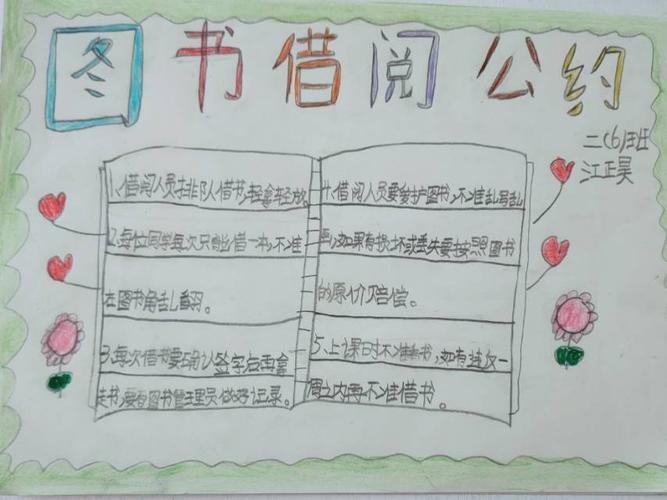 图书借阅公约
二(6)班
江正昊
1、借阅人员排队借书,轻拿轻放。
2、每位同学每次只能借一本,不准
在图书角乱翻。
3、每次借书要确认签字后再拿
走书,要有图书管理员做好记录。
4、借阅人员要爱护图书,不准乱写乱
画,如果有损坏或丢失要按照图书
的原价赔偿。
5、上课时不准看书,如有违反一
周之内再不准借书。